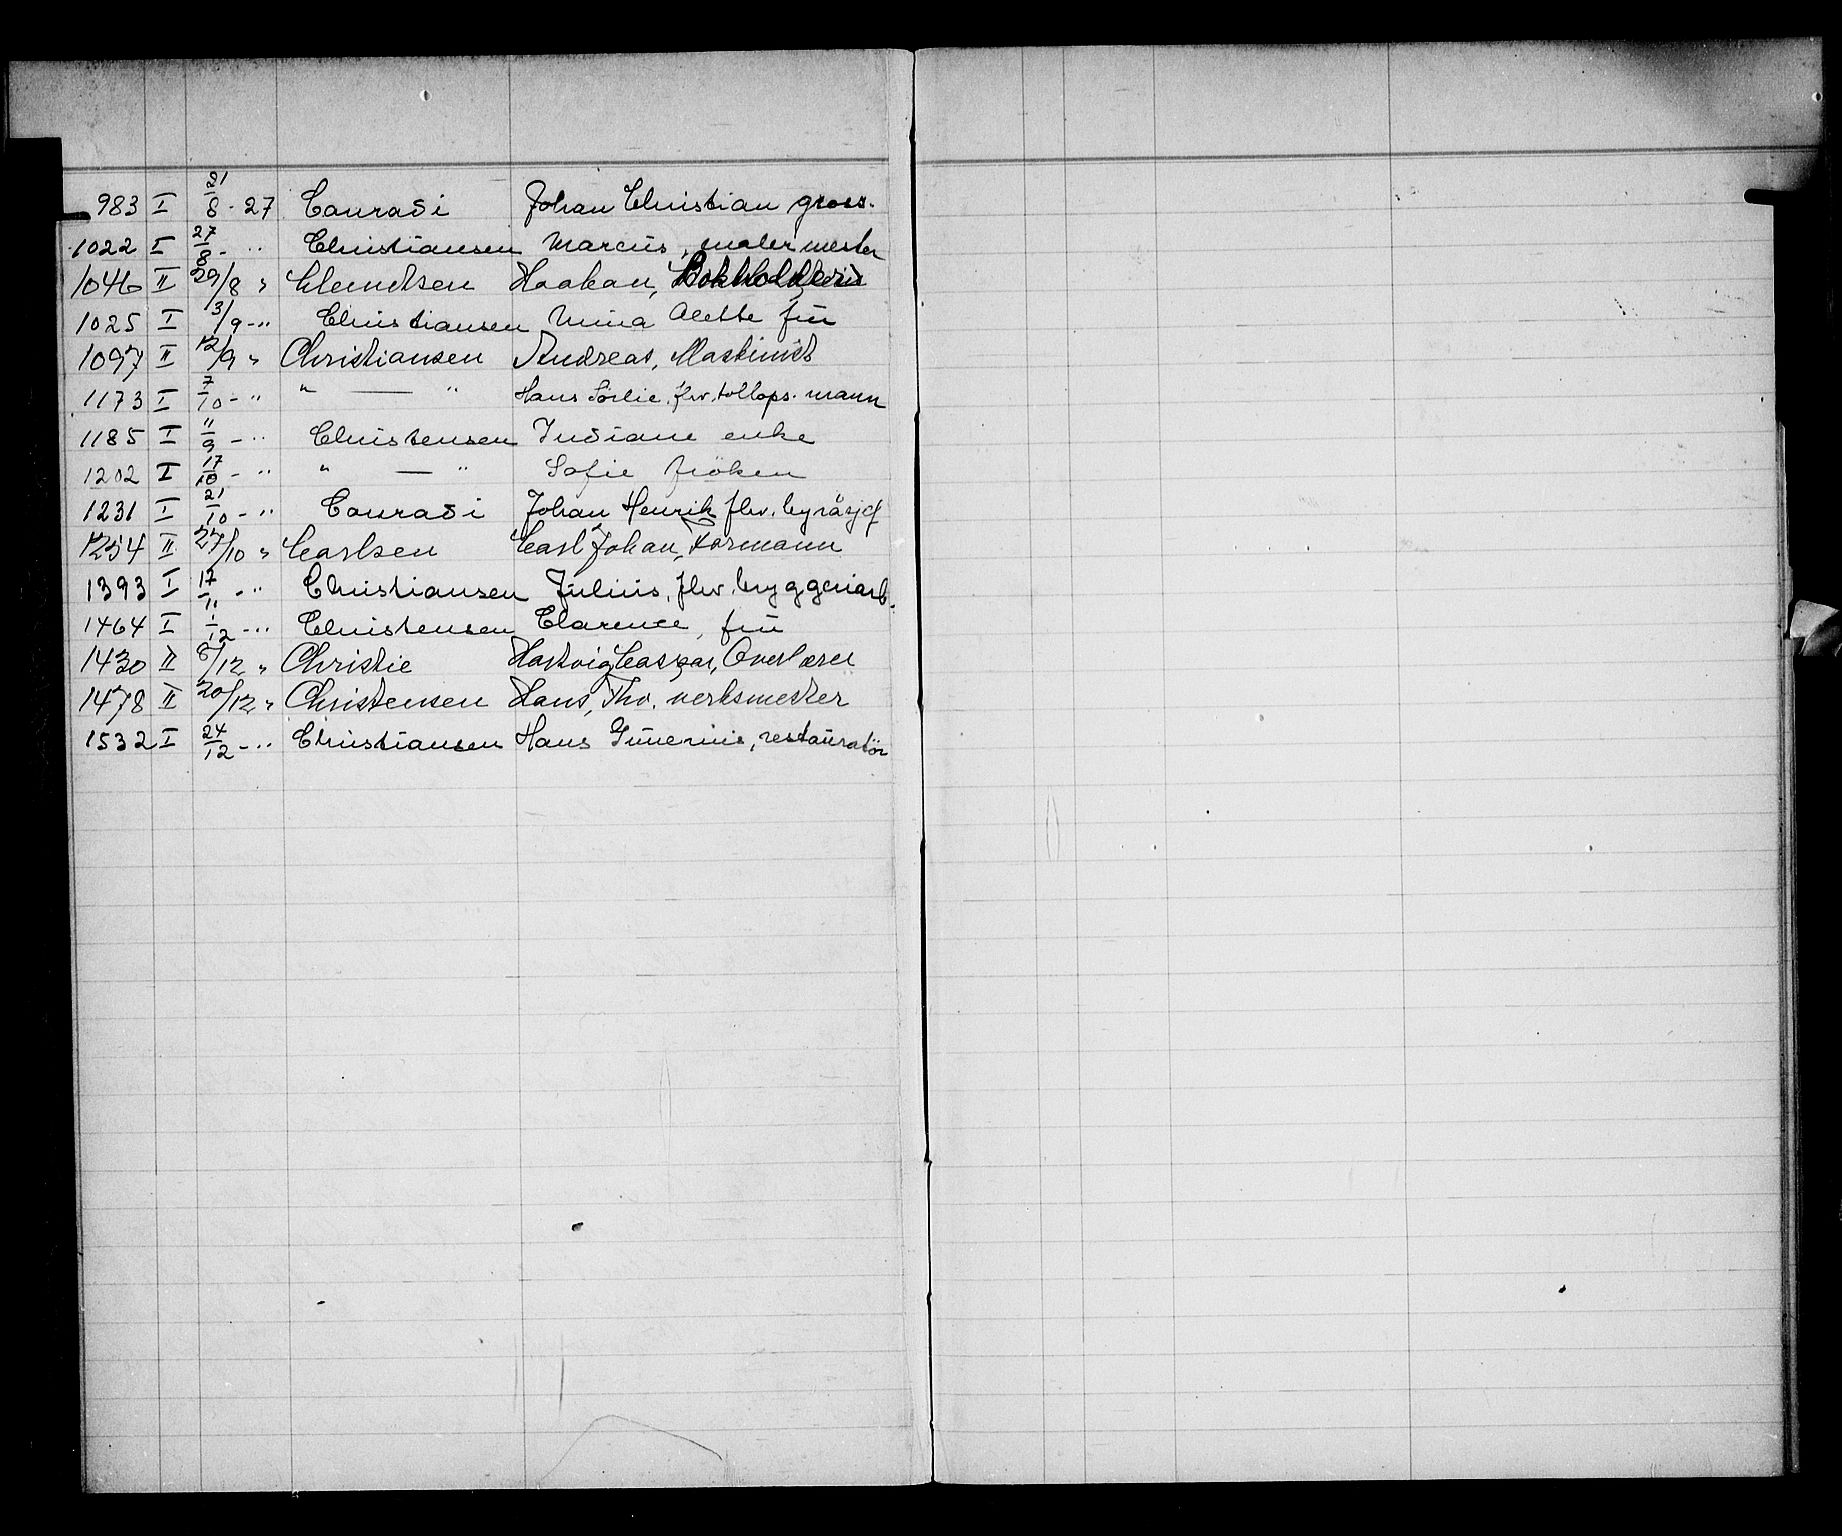 983 I 21/8 - 27 Conradi Johan Christian gross.
1022 I 27/8 - " Christiansen Marcus, malermester
1046 II 29/8 " Clemetsen Haakan,
1025 I 3/9 - " Christiansen Mina Alette frü
1097 II 12/9 " Christiansen Andreas, Maskinist
1173 I 7/10 - " " — " Hans Sørlie, fhv. tollops. mann
1185 I 11/9 - " Christensen Indiane enke
1202 I 17/10 - " " — " Sofie fröken
1231 I 21/10 - " Conradi Johan Henrik fhv. byråsjef
1254 II 27/10 " Carlsen Carl Johan, Formann
1393 I 17/11 - " Christiansen Julius, fhv. bryggeriarb.
1464 I 1/12 - " Christensen Clarence, frü
1430 II 8/12 " Christie Hartvig Caspar, Overlærer
1478 II 20/12 " Christensen Hans, Thv. verksmester
1532 I 24/12 - " Christiansen Hans restauratör